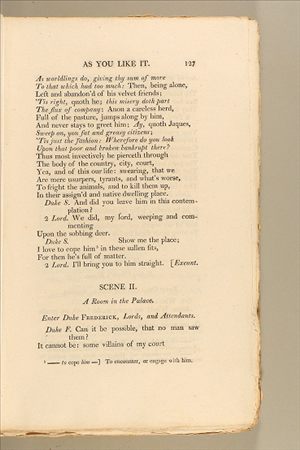 AS YOU LIKE IT. 127
As worldlings do, giving thy sum of more
To that which had too much: Then, being alone,
Left and abandon'd of his velvet friends;
'Tis right, quoth he; this misery doth part
The flux of company: Anon a careless herd,
Full of the pasture, jumps along by him,
And never stays to greet him; Ay, quoth Jaques,
Sweep on, you fat and greasy citizens;
'Tis just the fashion: Wherefore do you look
Upon that poor and broken bankrupt there?
Thus most invectively he pierceth through
The body of the country, city, court,
Yea, and of this our life: swearing, that we
Are mere usurpers, tyrants, and what's worse,
To fright the animals, and to kill them up,
In their assign'd and native dwelling place.
Duke S. And did you leave him in this contem-
plation?
2 Lord. We did, my lord, weeping and com-
menting
Upon the sobbing deer.
Duke S. Show me the place;
I love to cope him¹ in these sullen fits,
For then he's full of matter.
2 Lord. I'll bring you to him straight. [Exeunt.
SCENE II.
A Room in the Palace.
Enter Duke FREDERICK, Lords, and Attendants.
Duke F. Can it be possible, that no man saw
them?
It cannot be: some villains of my court
¹ —— to cope him —] To encounter, or engage with him.